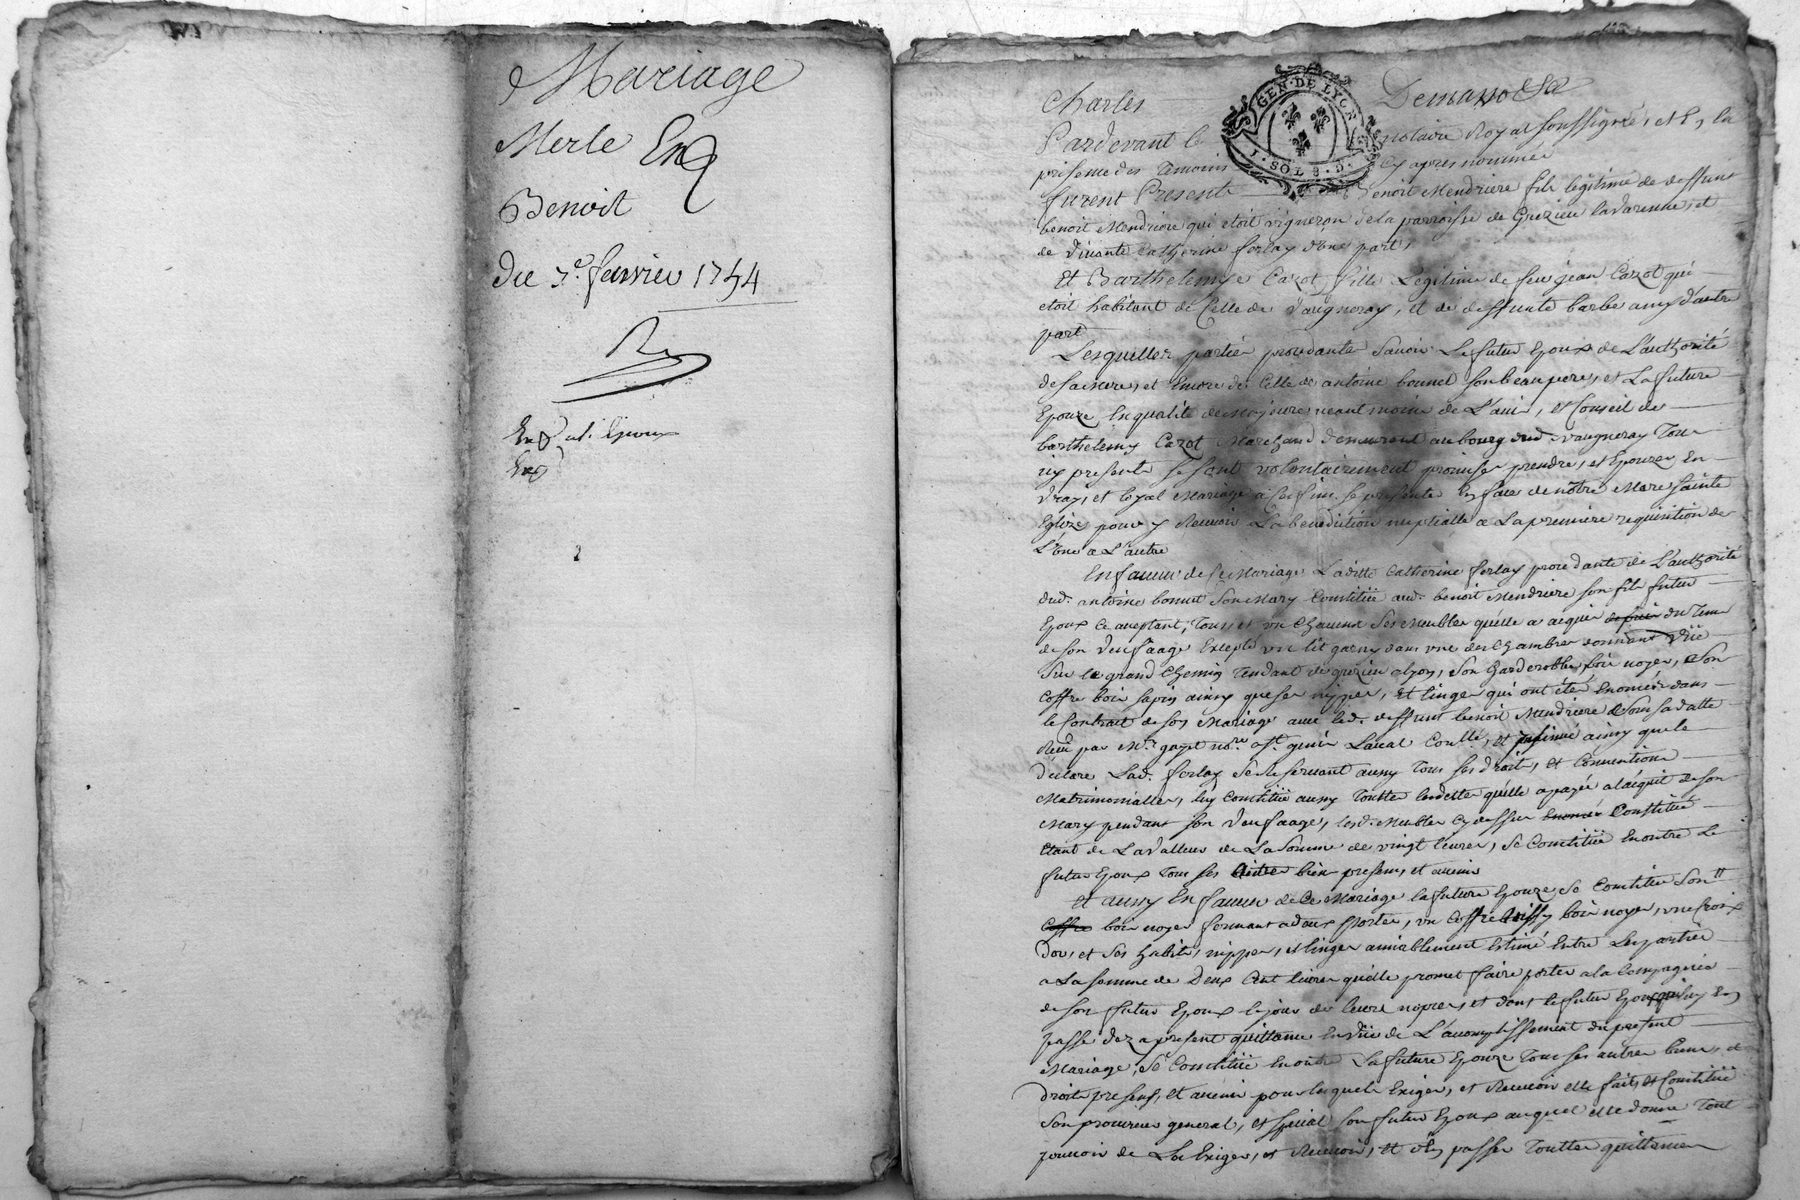 Mariage
Merle Exp
Benoit
Du 7e. fevrier 1754
Exp
Exp
Charles Demasso &a
GEN. DE LYON
1. SOL 8. D.
Pardevant le notaire Royal soussigné, et En la
presence des Temoins Cy apres nommés
furent Presents Benoit Mendriere fils legitime de deffunt
benoit Mendriere qui etoit vigneron de la parroisse de Grezieu lavarenne, et
de vivante Catherine forlay d'une part,
Et Barthelemye Cazot fille Legitime de feu jean Cazot qui
etoit habitant de Celle de Vaugneray, et de deffunte barbe any d'autre
part
Lesquelles parties procedantes Savoir Le futur Epoux de L'authorité
de sa mere, et Encore de Celle de antoine bonnet son beau pere, et La future
Epouze En qualité de Majeure neantmoins de L'avis, et Conseil de
barthelemy Cazot Marchand demeurant au bourg dud. vaugneray Tous
icy presents se sont volontairement promises prendre, et Epouzer En
vray, et loyal Mariage a ces fins se presenter En face de notre Mere sainte
Eglize pour y Recevoir La benediction nuptialle a La premiere requisition de
L'une a L'autre
En faveur de Ce Mariage Laditte Catherine forlay procedante de L'authorité
dud. antoine bonnet Son Mary Constitüe aud. benoit Mendriere son fils futur
Epoux Ce aceptant, Tous et un Chacuns Ses Meubles qu'elle a acquis du Tems
de son veufaage Excepté un lit garny dans une des Chambres donnant vüe
Sur le grand Chemin Tendant de grezieu a lyon, Son garderobbe bois noyer, Son
Coffre bois sapin ainsy que ses nippes, et linges qui ont été Enomés dans
le Contrat de son Mariage avec led. deffunt benoit Mendriere Sous sa datte
Reçu par Me. gazet nore. et ainsy que le
declare Lad. forlay Se Reservant aussy Tous ses droits, et Conventions
Matrimonialles, luy Constitüe aussy Touttes les dettes qu'elle a payée a l'acquit de son
Mary pendant son veufaage, lesd. Meubles Cy dessus Constitüé
Etant de La valleur de La Somme de vingt livres, Se Constitüe En outre Le
futur Epoux Tous ses autres biens presens, et avenir
Et aussy En faveur de Ce Mariage la future Epouze Se Constitüe Son
bois noyer fermant a deux portes, un Coffre aussy bois noyer, une Croix
D'or, et Ses habits, nippes, et linges amiablement Estimé Entre Les parties
a La somme de Deux Cent livres qu'elle promet faire porter a la Compagnie
de son futur Epoux le jour de leurs nopces, et dont le futur Epoux En
passe dez a present quittance En vüe de L'acomplissement du present
Mariage, Se Constitüe En outre La future Epouze Tous ses autres biens, et
droits presens, et avenir pour lesquels Exiger, et Recevoir elle fait, et Constitüe
Son procureur general, et special son futur Epoux auquel elle donne Tout
pouvoir de Les Exiger, et Recevoir, et d'En passer Touttes quittances